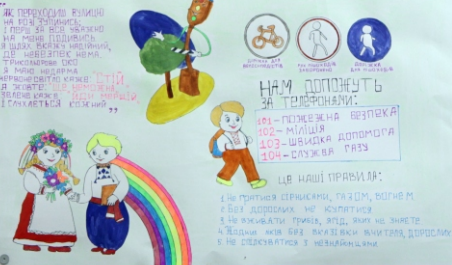 ЯК ПЕРЕХОДИШ ВУЛИЦЮ
НА РОЗІ ЗУПИНИСЬ,
І ПЕРШ ЗА ВСЕ УВАЖНО
НА МЕНЕ ПОДИВИСЬ
Я ШЛЯХ ВКАЖУ НАДІЙНИЙ,
ДЕ НЕБЕЗПЕК НЕМА.
ТРИКОЛІРНЕ ОКО
Я МАЮ НЕДАРМА
ЧЕРВОНЕ СВІТЛО КАЖЕ: СТІЙ
А ЖОВТЕ: ЩЕ НЕ МОЖНА
ЗЕЛЕНЕ КАЖЕ: ЙДИ МЕРЩІЙ
І СЛУХАЄТЬСЯ КОЖНИЙ
НАМ ДОПОЖУТЬ
ЗА ТЕЛЕФОНАМИ:
101 - ПОЖЕЖНА БЕЗПЕКА
102 - МІЛІЦІЯ
103 - ШВИДКА ДОПОМОГА
104 - СЛУЖБА ГАЗУ
ЦЕ НАШІ ПРАВИЛА:
1. НЕ ГРАТИСЯ СІРНИКАМИ, ГАЗОМ, ВОГНЕМ
2. БЕЗ ДОРОСЛИХ НЕ КУПАТИСЯ
3. НЕ ВЖИВАТИ ГРИБІВ, ЯГІД, ЯКИХ НЕ ЗНАЄТЕ
4. ЛІКІВ БЕЗ ВКАЗІВКИ ВЧИТЕЛЯ, ДОРОСЛИХ
5. НЕ СПІЛКУВАТИСЯ З НЕЗНАЙОМЦЯМИ